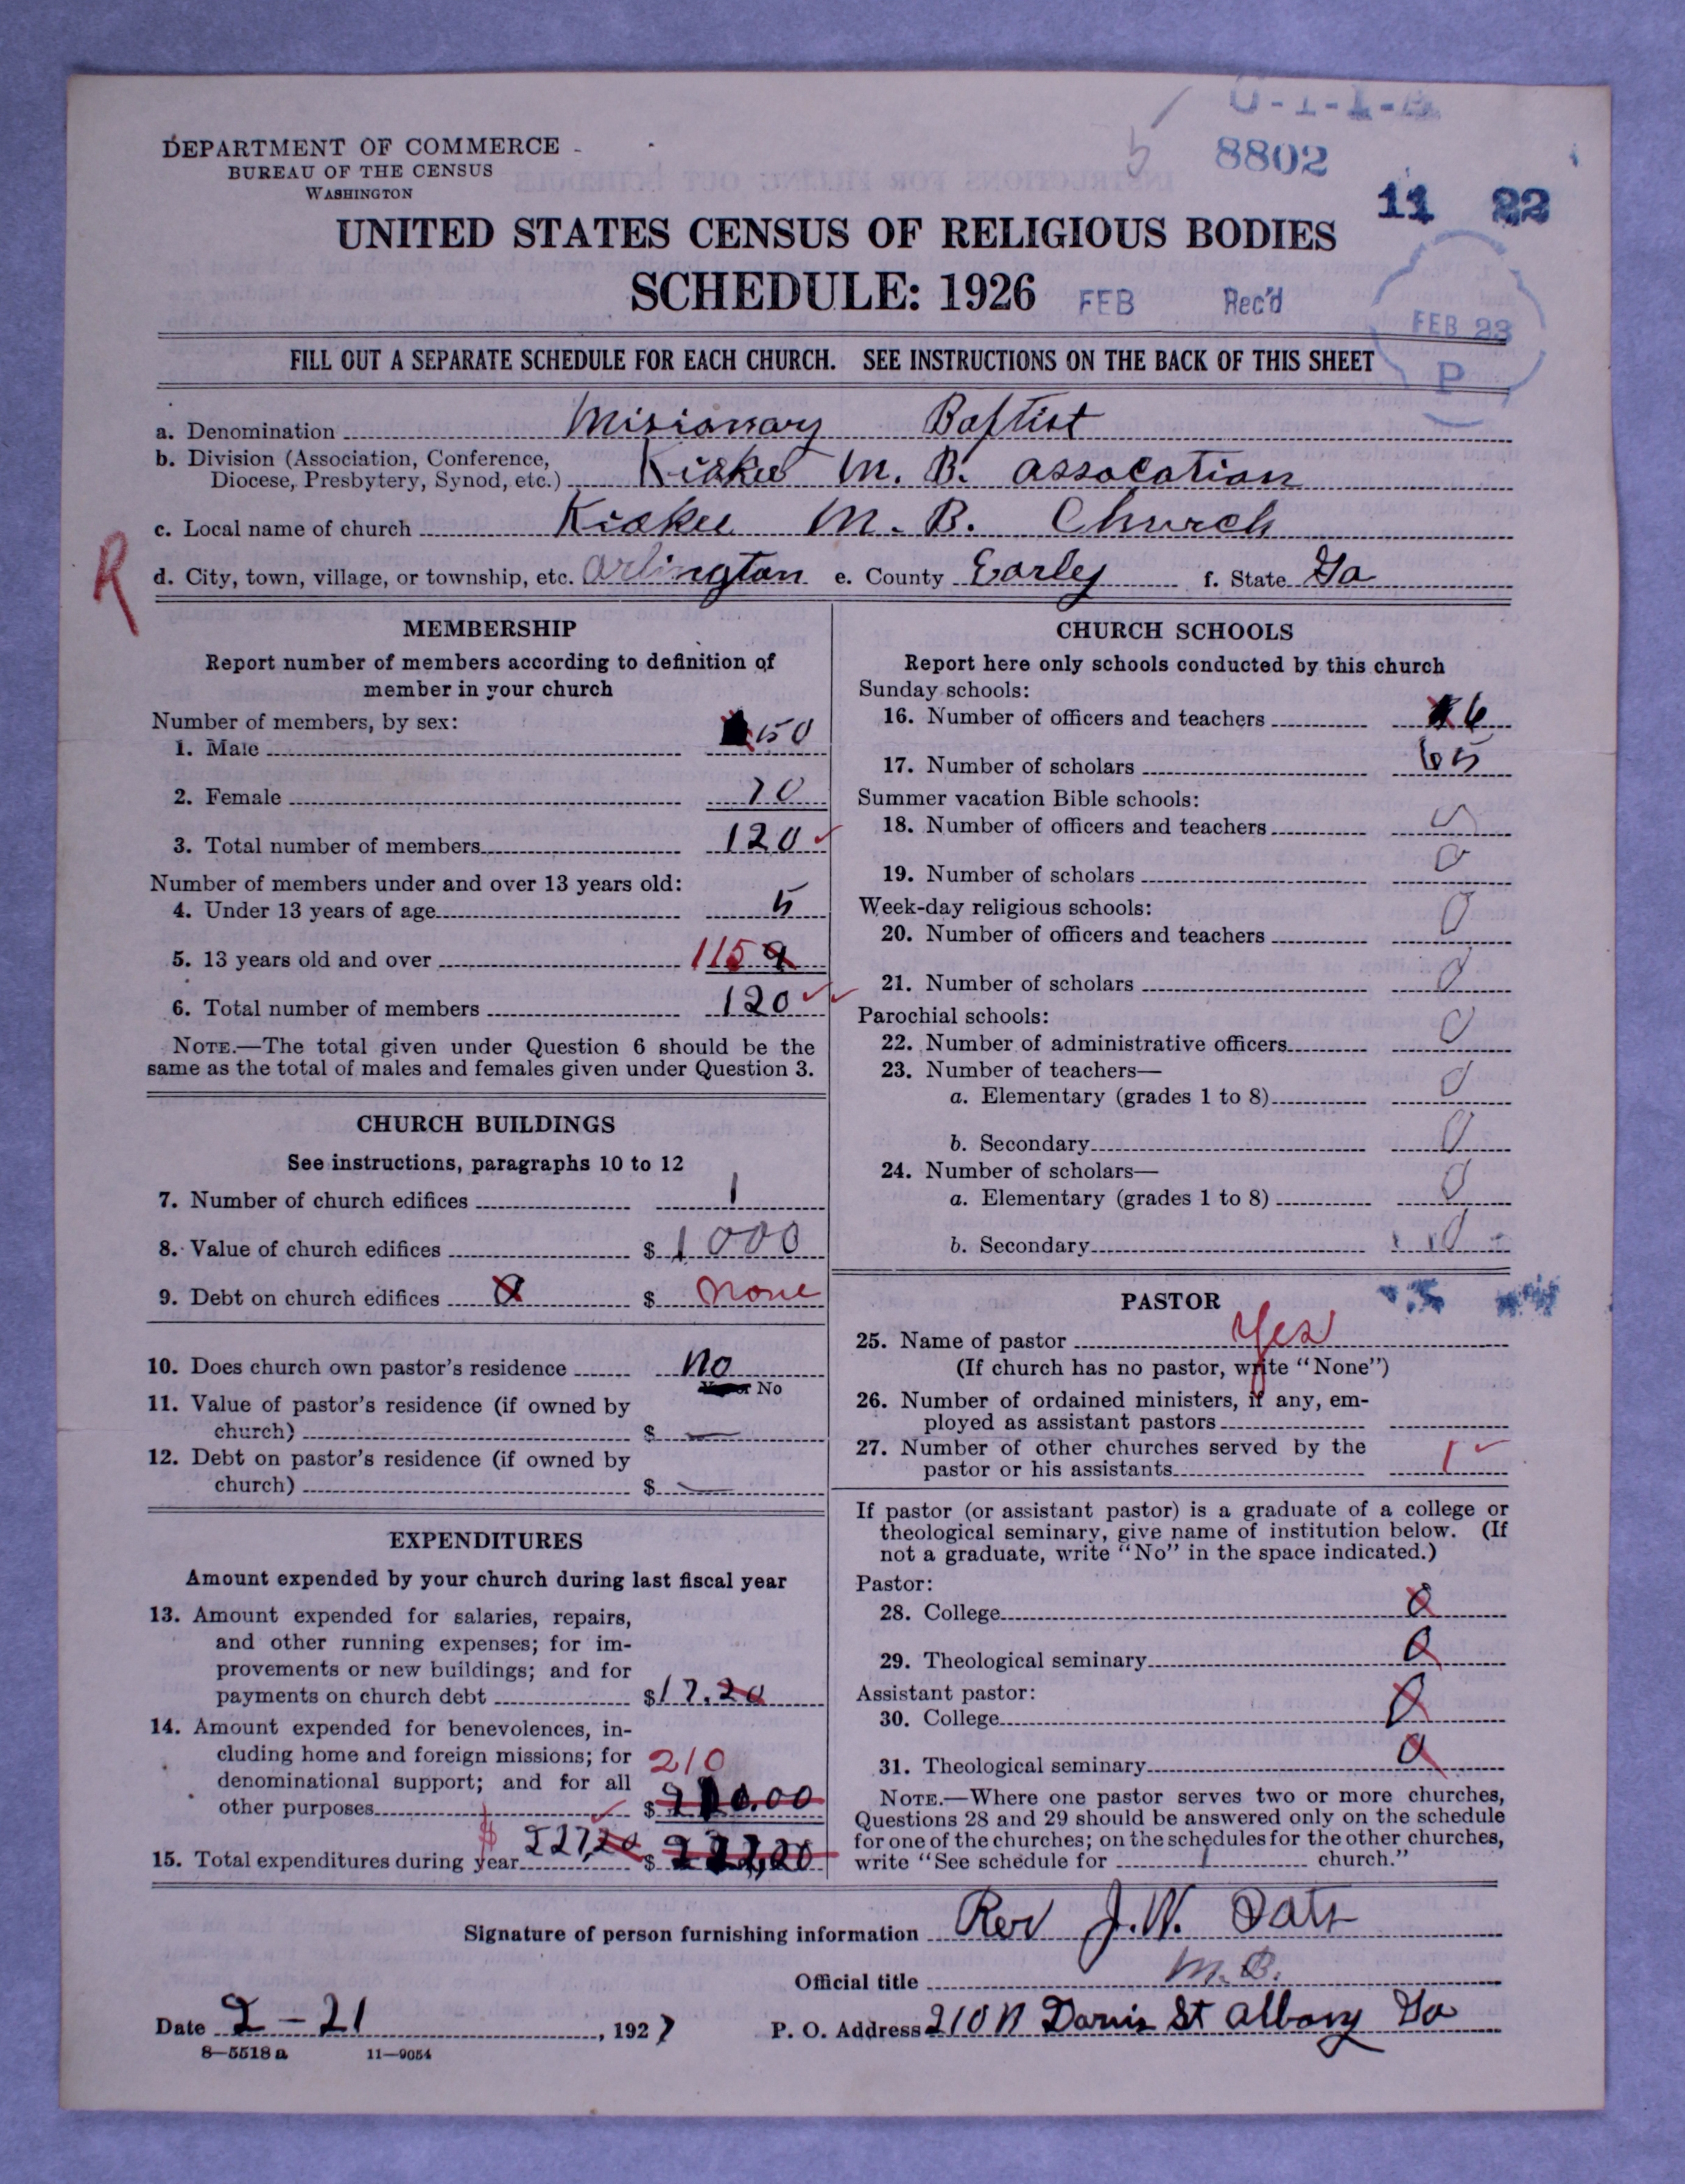 8802
11 22
DEPARTMENT OF COMMERCE
BUREAU OF THE CENSUS
WASHINGTON
UNITED STATES CENSUS OF RELIGIOUS BODIES
SCHEDULE: 1926
FEB Rec'd
FEB 23
P
FILL OUT A SEPARATE SCHEDULE FOR EACH CHURCH. SEE INSTRUCTIONS ON THE BACK OF THIS SHEET
a. Denomination Misionary Baptist
b. Division (Association, Conference,
Diocese, Presbytery, Synod, etc.) Kiokee M. B. assocation
c. Local name of church Kiokee M. B. Church
R
d. City, town, village, or township, etc. Arlington e. County Earley f. State Ga
MEMBERSHIP
Report number of members according to definition of
member in your church
Number of members, by sex:
1. Male 50
2. Female 70
3. Total number of members 120
Number of members under and over 13 years old:
4. Under 13 years of age 5
5. 13 years old and over 115
6. Total number of members 120
NOTE.—The total given under Question 6 should be the
same as the total of males and females given under Question 3.
CHURCH BUILDINGS
See instructions, paragraphs 10 to 12
7. Number of church edifices 1
8. Value of church edifices $ 1000
9. Debt on church edifices 0 $ none
10. Does church own pastor's residence No
or No
11. Value of pastor's residence (if owned by
church) $ —
12. Debt on pastor's residence (if owned by
church) $ —
EXPENDITURES
Amount expended by your church during last fiscal year
13. Amount expended for salaries, repairs,
and other running expenses; for im-
provements or new buildings; and for
payments on church debt $17.20
14. Amount expended for benevolences, in-
cluding home and foreign missions; for
denominational support; and for all
210
other purposes $ 210.00
15. Total expenditures during year $ 227,20 $ 227,20
CHURCH SCHOOLS
Report here only schools conducted by this church
Sunday schools:
16. Number of officers and teachers 6
17. Number of scholars 65
Summer vacation Bible schools:
18. Number of officers and teachers 0
19. Number of scholars 0
Week-day religious schools:
20. Number of officers and teachers 0
21. Number of scholars 0
Parochial schools:
22. Number of administrative officers 0
23. Number of teachers—
a. Elementary (grades 1 to 8) 0
b. Secondary 0
24. Number of scholars—
a. Elementary (grades 1 to 8) 0
b. Secondary 0
PASTOR
25. Name of pastor Yes
(If church has no pastor, write "None")
26. Number of ordained ministers, if any, em-
ployed as assistant pastors
27. Number of other churches served by the
pastor or his assistants 1
If pastor (or assistant pastor) is a graduate of a college or
theological seminary, give name of institution below. (If
not a graduate, write "No" in the space indicated.)
Pastor:
28. College 0
29. Theological seminary 0
Assistant pastor:
30. College 0
31. Theological seminary 0
NOTE.—Where one pastor serves two or more churches,
Questions 28 and 29 should be answered only on the schedule
for one of the churches; on the schedules for the other churches,
write "See schedule for 1 church."
Signature of person furnishing information Rev J. W. Oats
Official title M. B.
Date 2-21, 1927 P. O. Address 210 N Davis St Albany Ga
8—5518a 11—9054